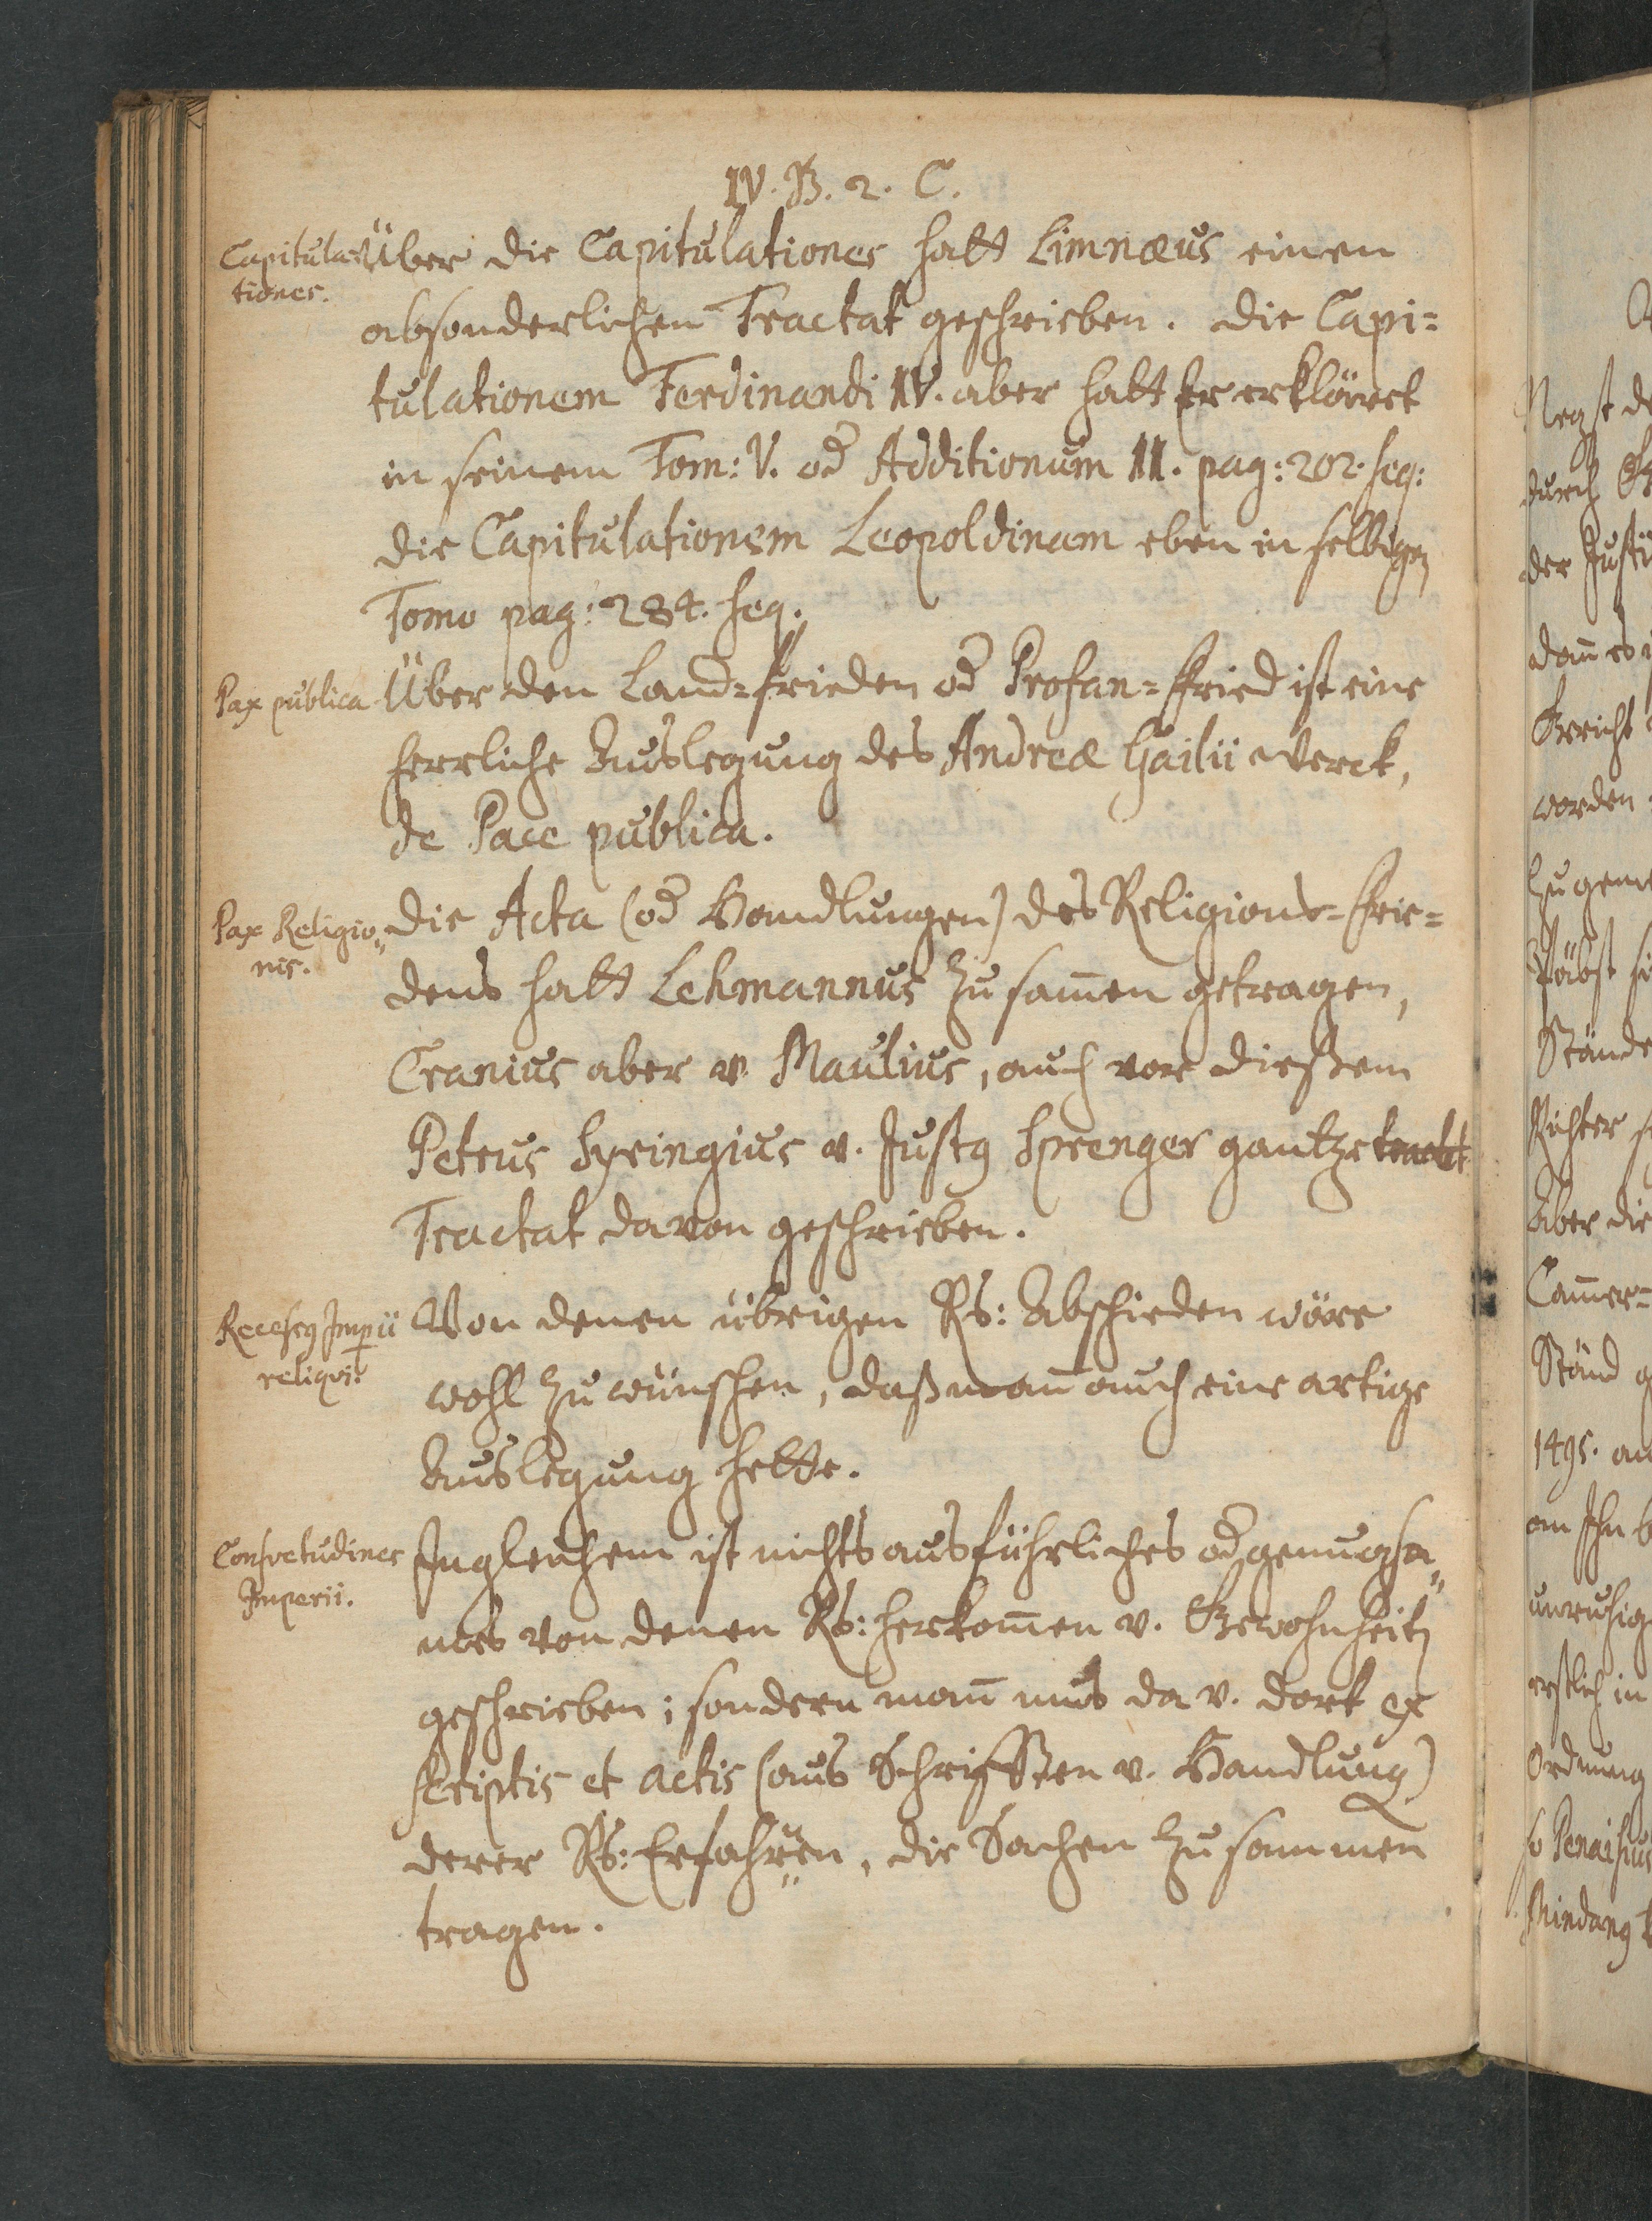 IV. B. 2. C.
Capitula-
tiones.
Über die Capitulationes hatt Limnæus einen
absonderlichen Tractat geschrieben. Die Capi=
tulationem Ferdinandi IV. aber hatt er erkläret
in seinem Tom: V. od Additionum II. pag: 202. seq:
die Capitulationem Leopoldinam eben in selbigen
Tomo pag: 284. seq.
Pax publica
Über den Land=frieden od Profan=Fried ist eine
herrliche Auslegung des Andreæ Gailii Werck,
de Pace publica.
Pax Religio„
nis.
Die Acta (od Handlungen) des Religions=Frie=
dens hatt Lehmannus zusam̄en getragen,
Cranius aber v. Maulius, auch vor dießem
Petrus Syringius v. Justg Sprenger gantze
Tractat davon geschrieben.
Recessg Imp̱ii
reliqvi.
Von denen übrigen Rs: Abschieden wäre
wohl zu wünschen, daß man̄ auch eine artige
Auslegung hette.
Consvetudines
Imperii.
Ingleichem ist nichts ausführliches od genugsa„
mes von denen Rs: herkom̄en v. Gewohnheitē
geschrieben; sondern man̄ mus da v. dort ex
scriptis et actis (aus Schrifften v. Handlung)
derer Rs: Erfahrnen, die Sachen zusammen
tragen.
Negst de
durch
der Justi
dan̄ es
Gericht
worden
zu geme
Pabst
Stände
Richter
aber die
Cam̄er=
Ständ
1495.
am Ihn
unruhig
erstlich in
Ordnung
so Penaisius
Mindang